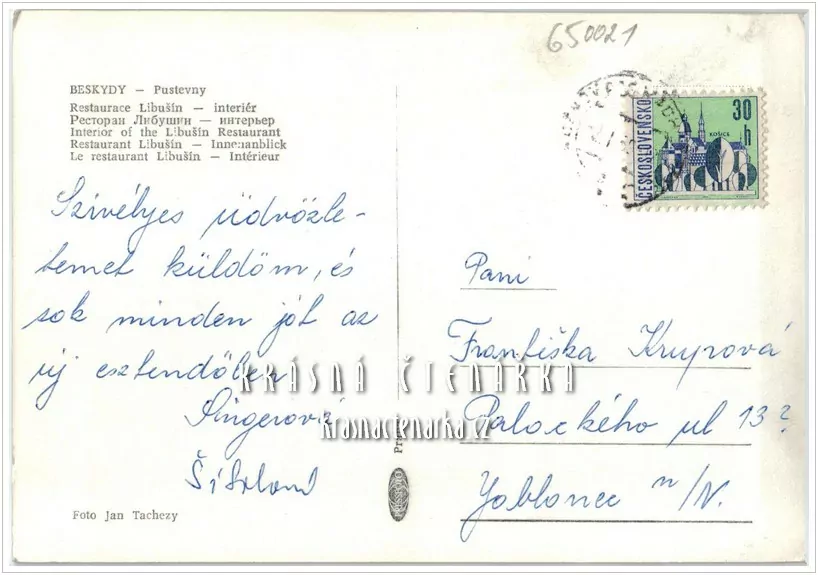 650021
BESKYDY — Pustevny
Restaurace Libušín — interiér
Ресторан Либушин — интерьер
Interior of the Libušín Restaurant
Restaurant Libušín — Innenanblick
Le restaurant Libušín — Intérieur
ČESKOSLOVENSKO
30
h
KOŠICE
Szivélyes üdvözle-
temet küldöm, és
sok minden jót az
új esztendőben
Singerová
Paní
Františka Krupová
Palackého ul 13?
Jablonec n/N.
KRÁSNÁ ČTENÁRKA
krasnactenarka.cz
Foto Jan Tachezy